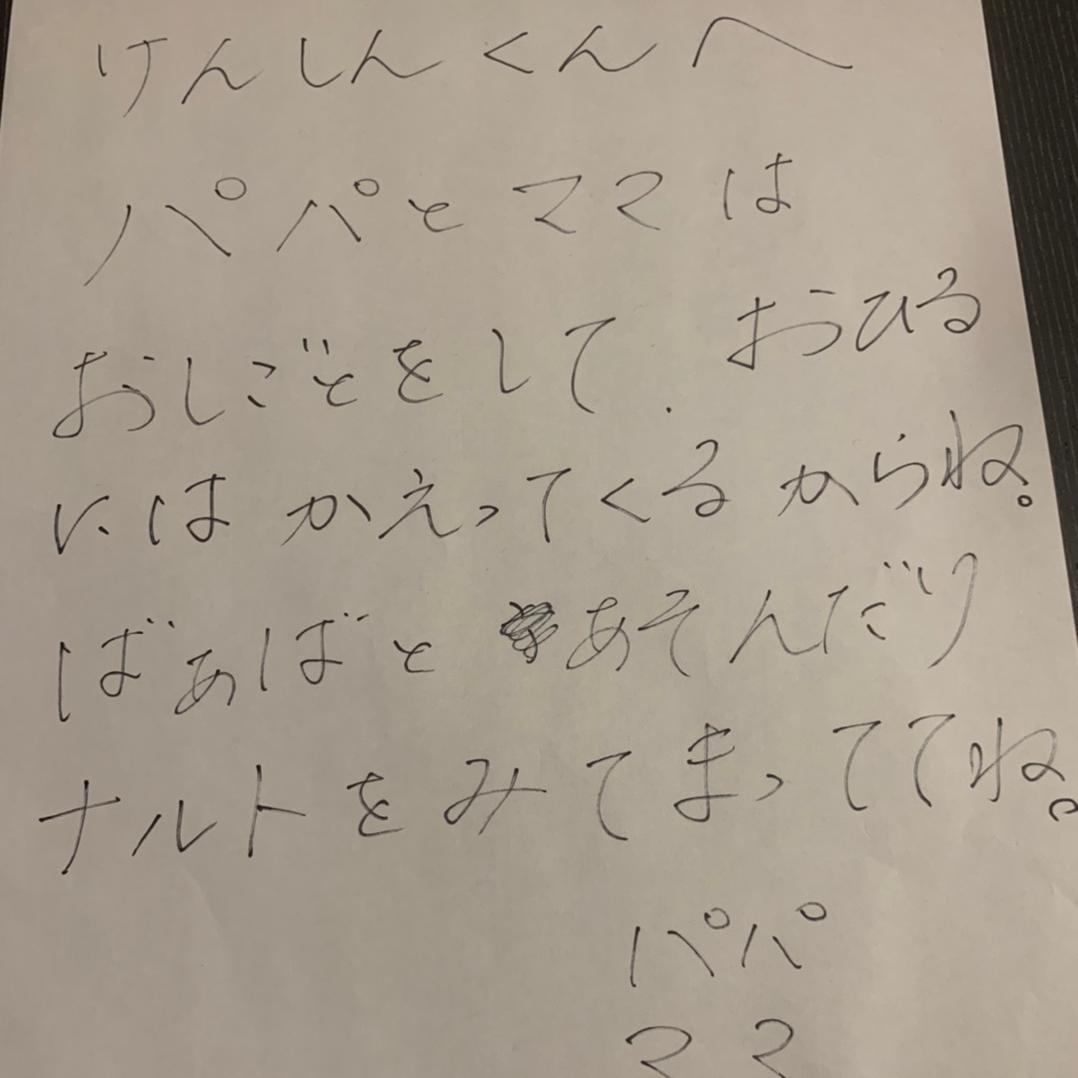 けんしんくんへ
パパとママは
おしごとをして．おひる
にはかえってくるからね。
ばぁばとあそんだり
ナルトをみてまっててね。
パパ
ママ